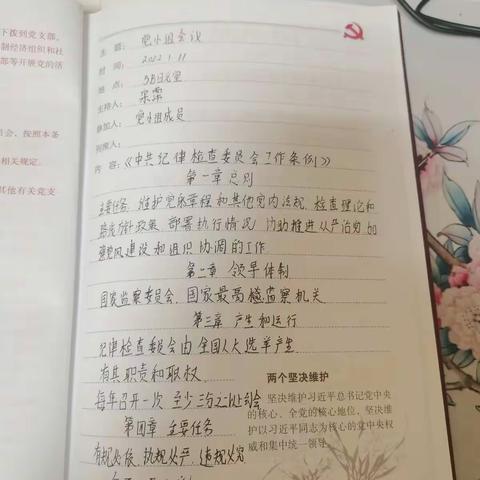 下拨到党支部。
制经济组织和社
部等开展党的活
员会、按照本条
相关规定。
其他有关党支
主题: 党小组会议
时间: 2022.1.11
地点:
主持人:
参加人: 党小组成员
列席人:
内容:《中共纪律检查委员会工作条例》
第一章 总则
主要任务 维护党的章程和其他党内法规 检查理论和
路线方针政策 部署执行情况 协助推进从严治党 加
强党风建设和组织协调的工作
第二章 领导体制
国家监察委员会、国家最高监察机关
第三章 产生和运行
纪律检查委员会由全国人大选举产生
有其职责和职权
每年召开一次 至少 到会
第四章 主要任务
有规必依、执规必严、违规必究
两个坚决维护
坚决维护习近平总书记党中央
的核心、全党的核心地位,坚决维
护以习近平同志为核心的党中央权
威和集中统一领导。